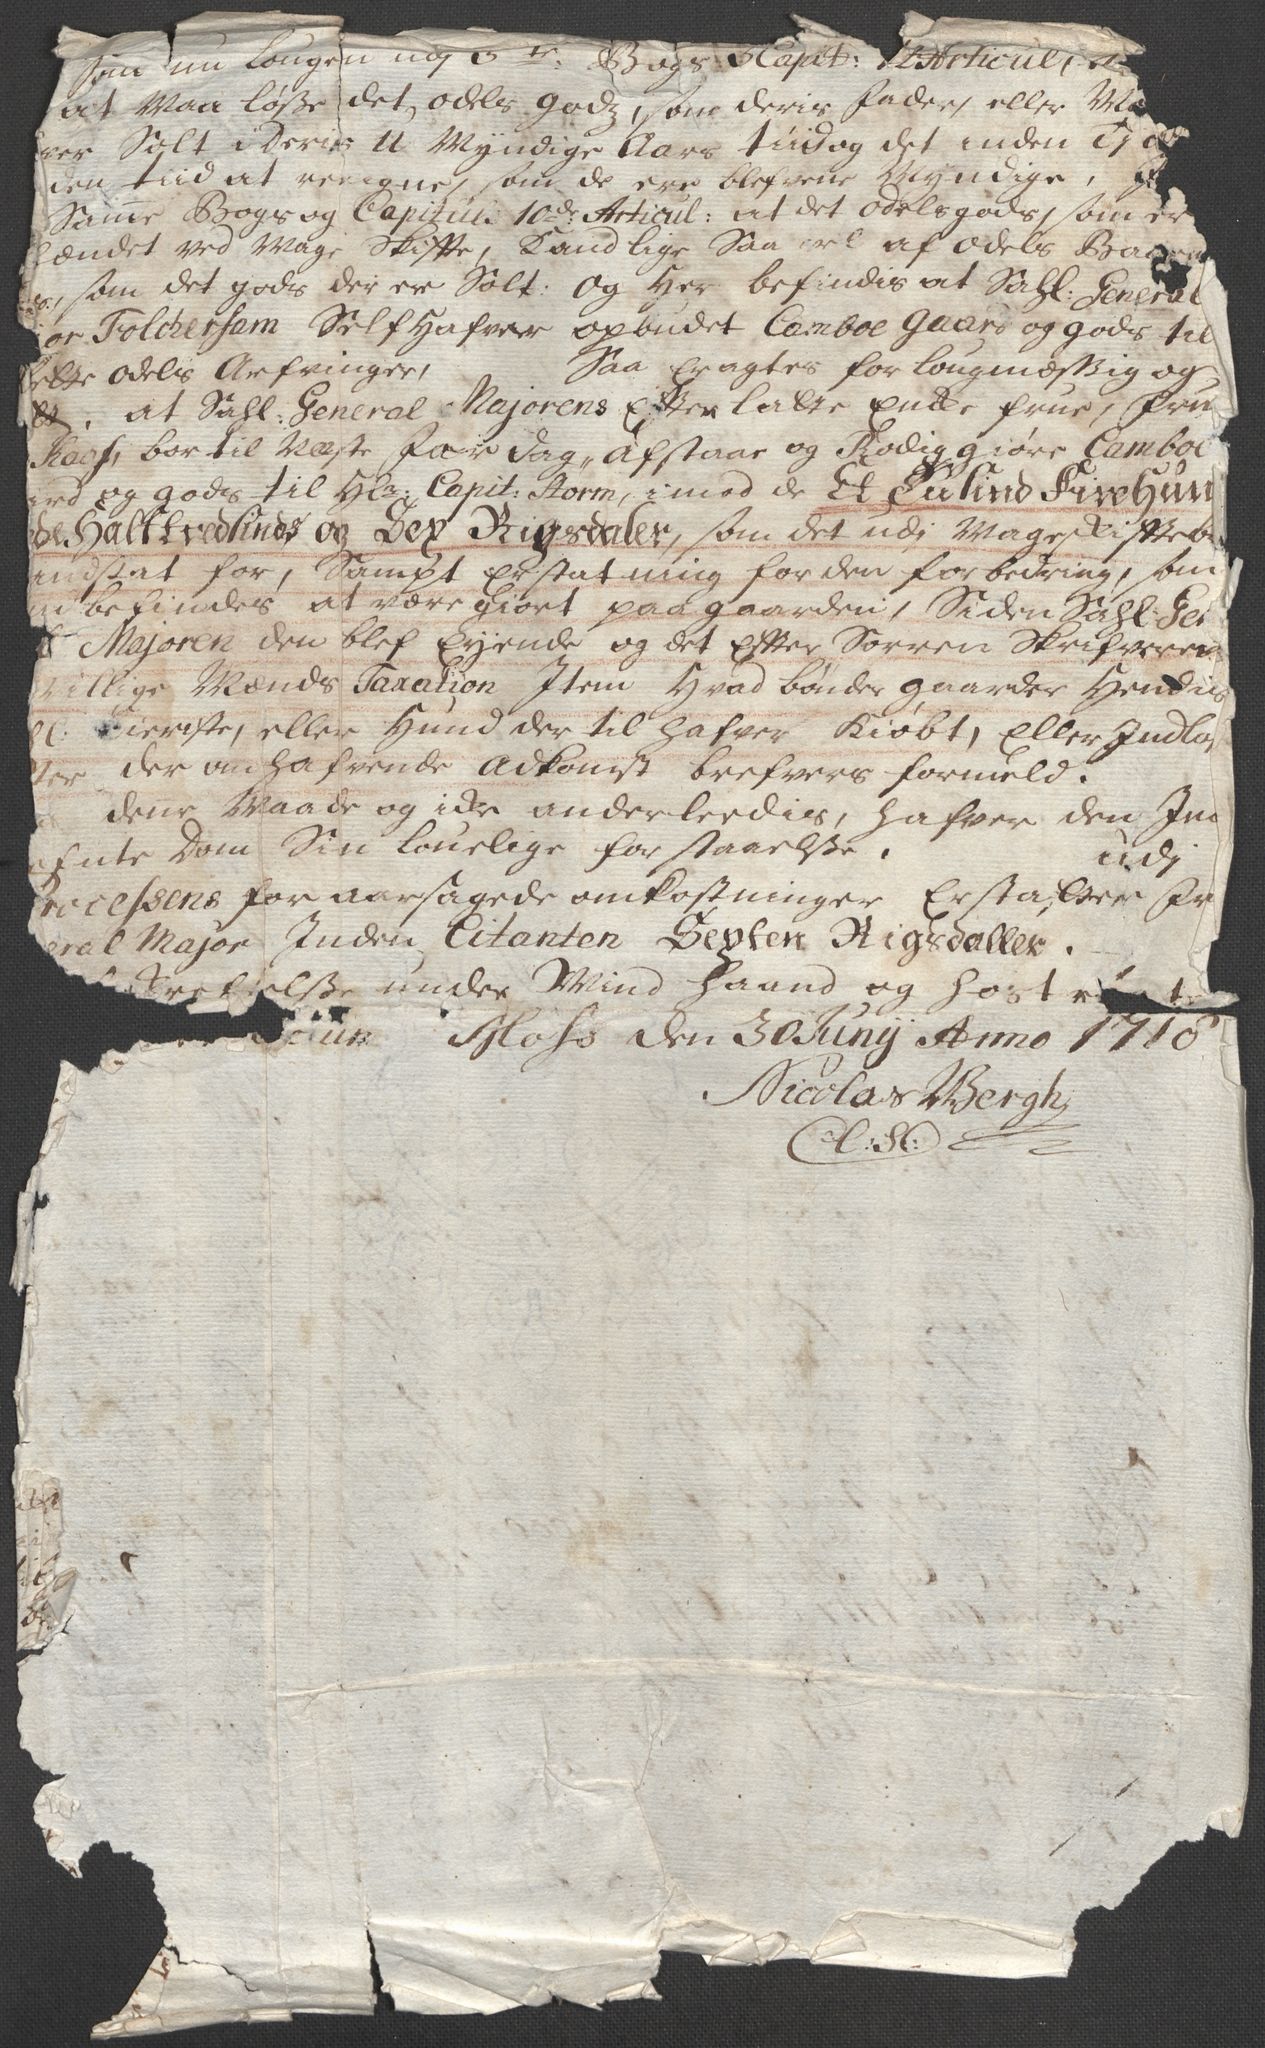 Som nu Lougen udj 5te: Bogs 3 Capit: 12 Articul,
at Maa løsse det odels godz, som deris Fader, eller Mo
Solt i Deris U Myndige Aars tiid og det inden
den tiid at reigne, som de ere blefvene Myndige,
Samme Bogs og Capituls 10de: Articul: at det odelsgods, som er
hændet ved Mage Skiffte, Kand lige Saa vel af odels Baar
som det gods der er Solt: og Her befindis at Sahl: General
or Folchersam Self Hafver opbudet Camboe Gaard og gods til
rette odels Arfvinger, Saa Eragtes for lougmæssig og
at Sahl: General Majorens Effterlatte Encke frue, fru
Kaas, bør til Næste Fardag, Afstaae og Rødiggiøre Camboe
ard og gods til Hr: Capit: Storm, imod de Et Tusind Fire Hun
de Halftredsinds og Sex Rigsdaler, som det udj Mageskifftebr
indsat for, Sampt Erstatning for den forbedring, som
n befindes at være giort paa gaarden, Siden Sahl: Gen
Majoren den blef Eyende og det Effter Sorren Skrifveren
villige Mænds Taxation Item Hvad bønder gaarder Hendis
eller Hund der til hafver Kiøbt, Eller Indlø
ter der om hafvende Adkomst brefvers formeld.
denne Maade og icke anderleedis, hafver den In
efnte Dom Sin Louelige forstaaelsse. udj
Processens for aarsagede omkostninger Erstatter Fr
eral Major Inden Citanten Sexten Rigsdaller.
under Mind Haand og hos
den 30 Junij Anno 1718
Nicolas Bergh